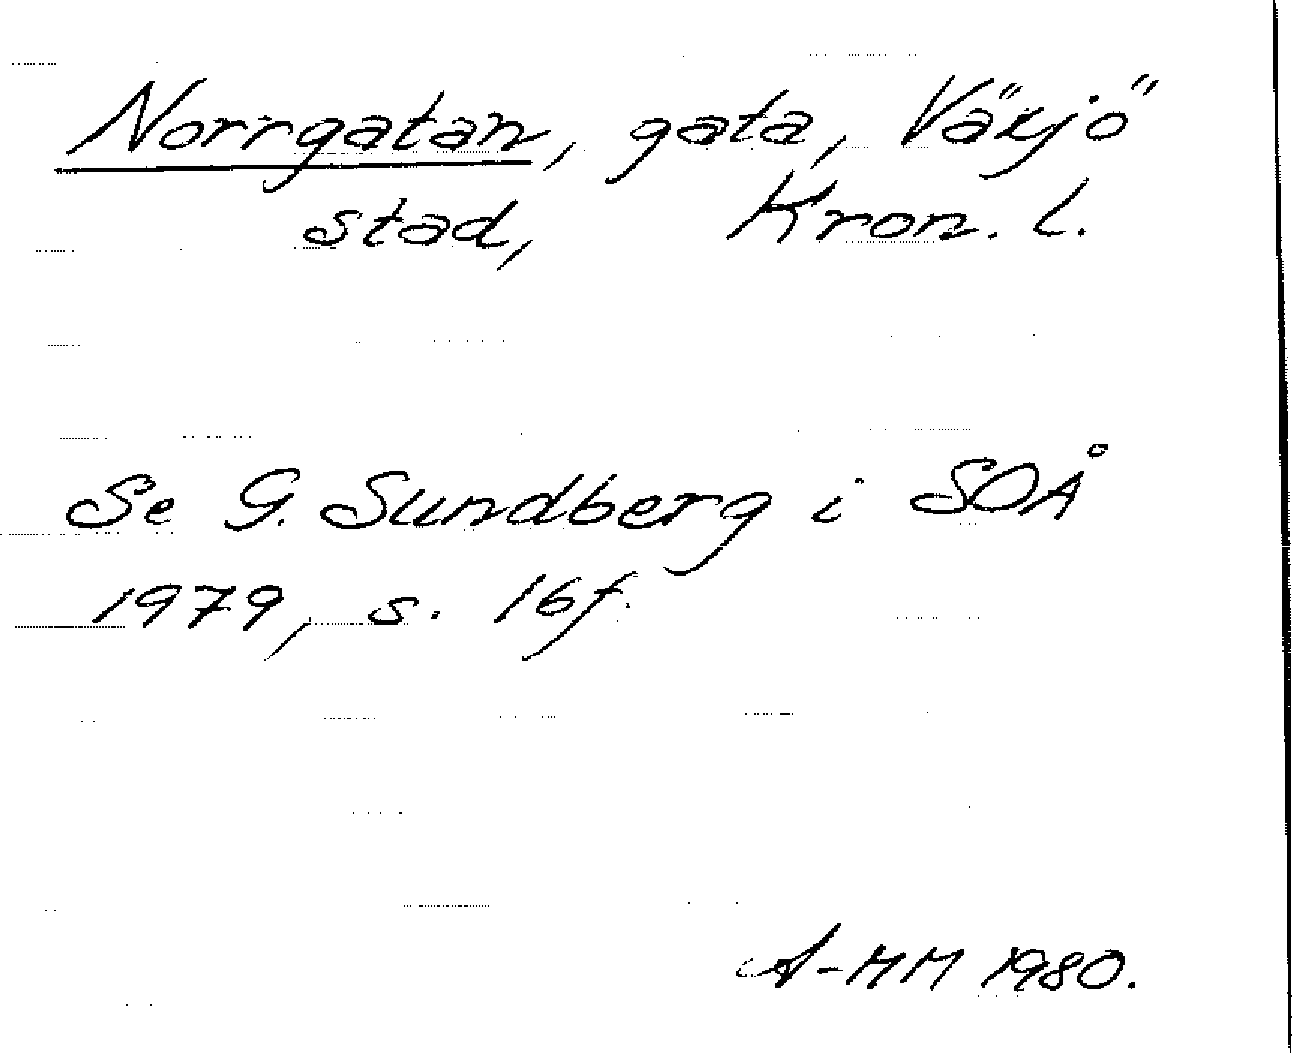 Norrgatan, gata, Växjö
stad, Kron. l.
Se G. Sundberg i SOÅ
1979, s. 16f.
A-MM 1980.